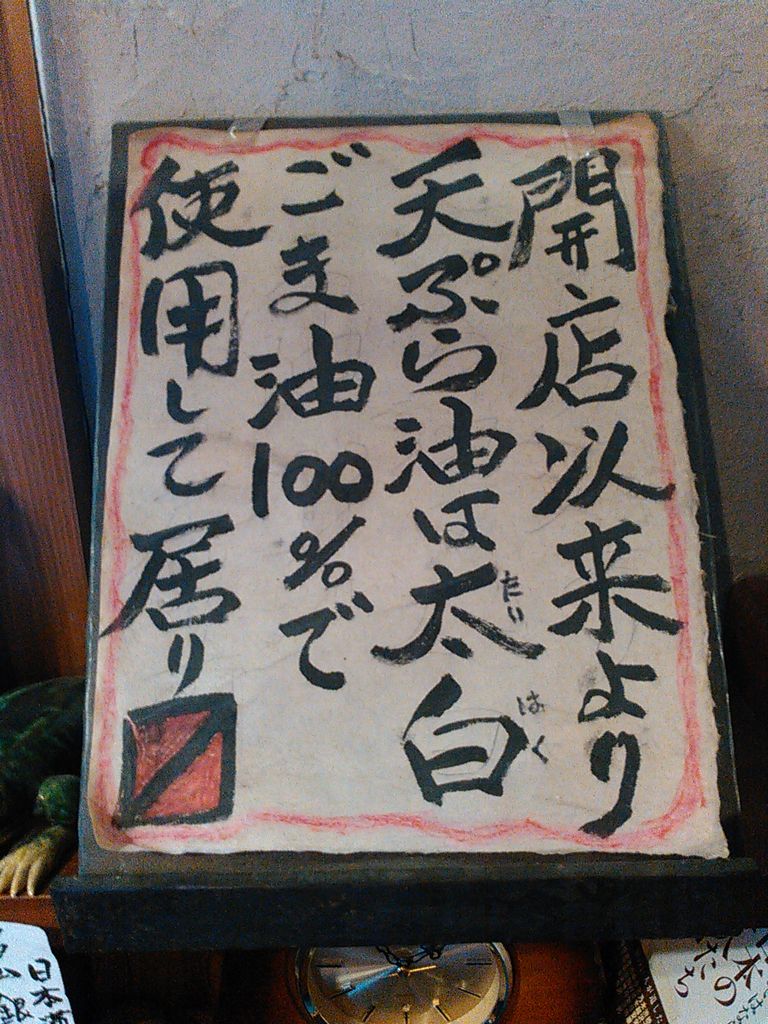 開店以来より
天ぷら油は太白
たい
はく
ごま油100%で
使用して居り〼
日本酒